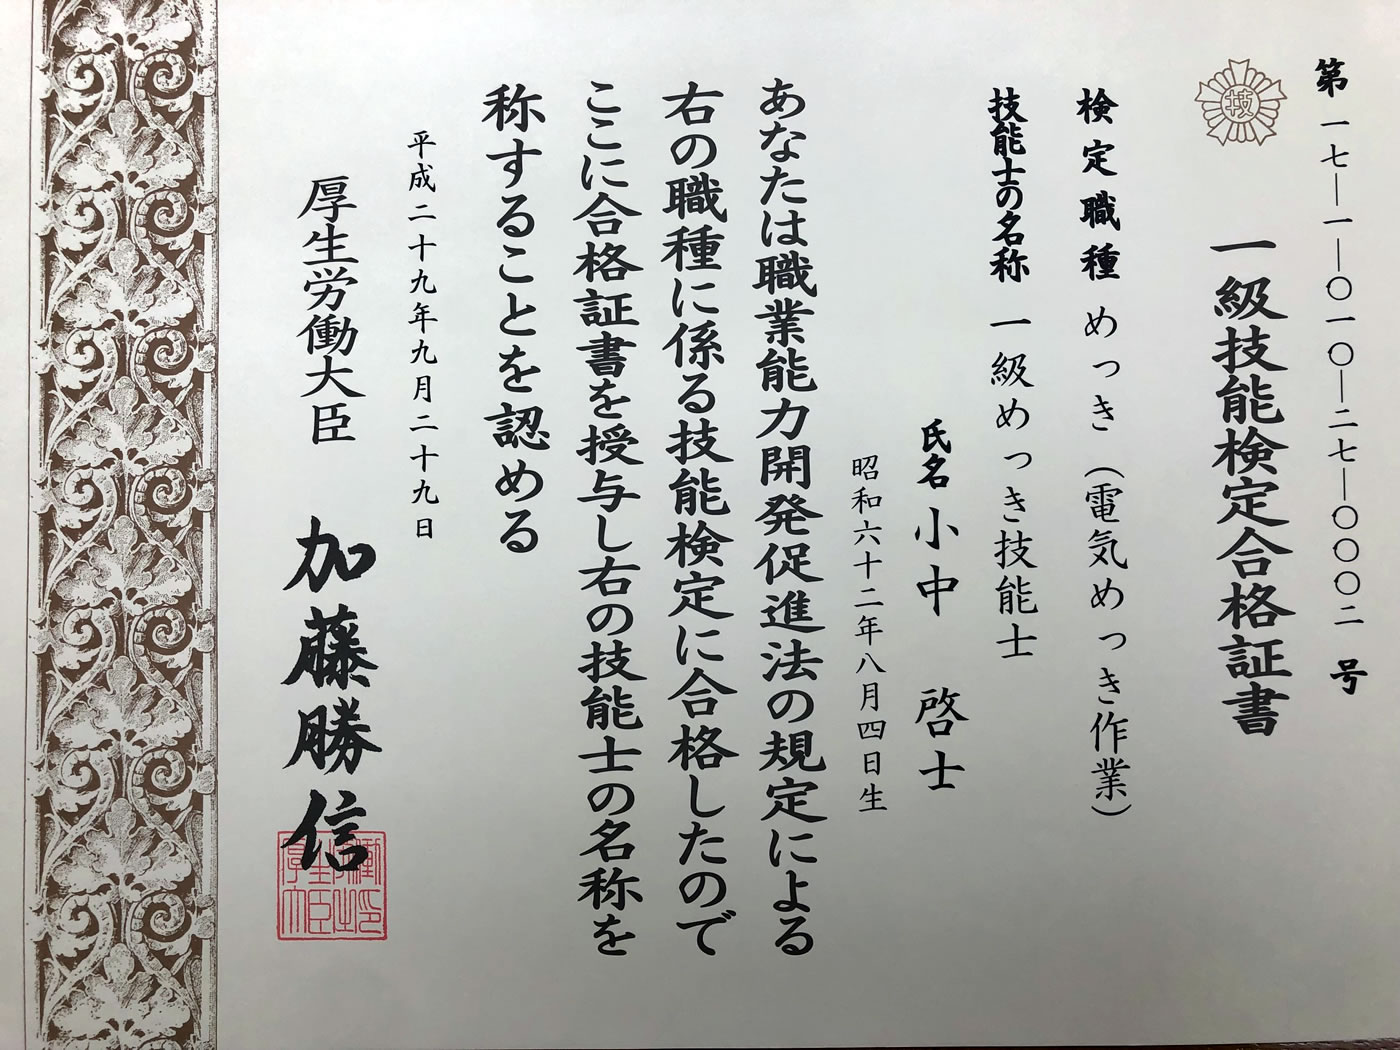 第一七―一―〇一〇―二七―〇〇〇二号
技
一級技能検定合格証書
検定職種 めっき（電気めっき作業）
技能士の名称 一級めっき技能士
氏名 小中 啓士
昭和六十二年八月四日生
あなたは職業能力開発促進法の規定による
右の職種に係る技能検定に合格したので
ここに合格証書を授与し右の技能士の名称を
称することを認める
平成二十九年九月二十九日
厚生労働大臣 加藤勝信